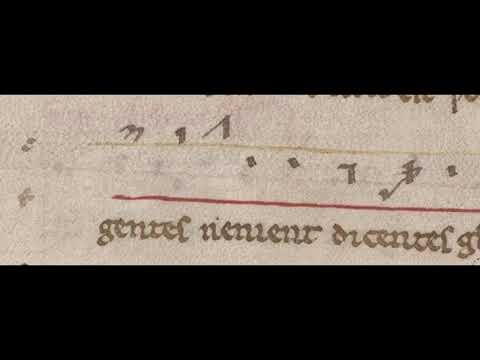 gentes uenient dicentes